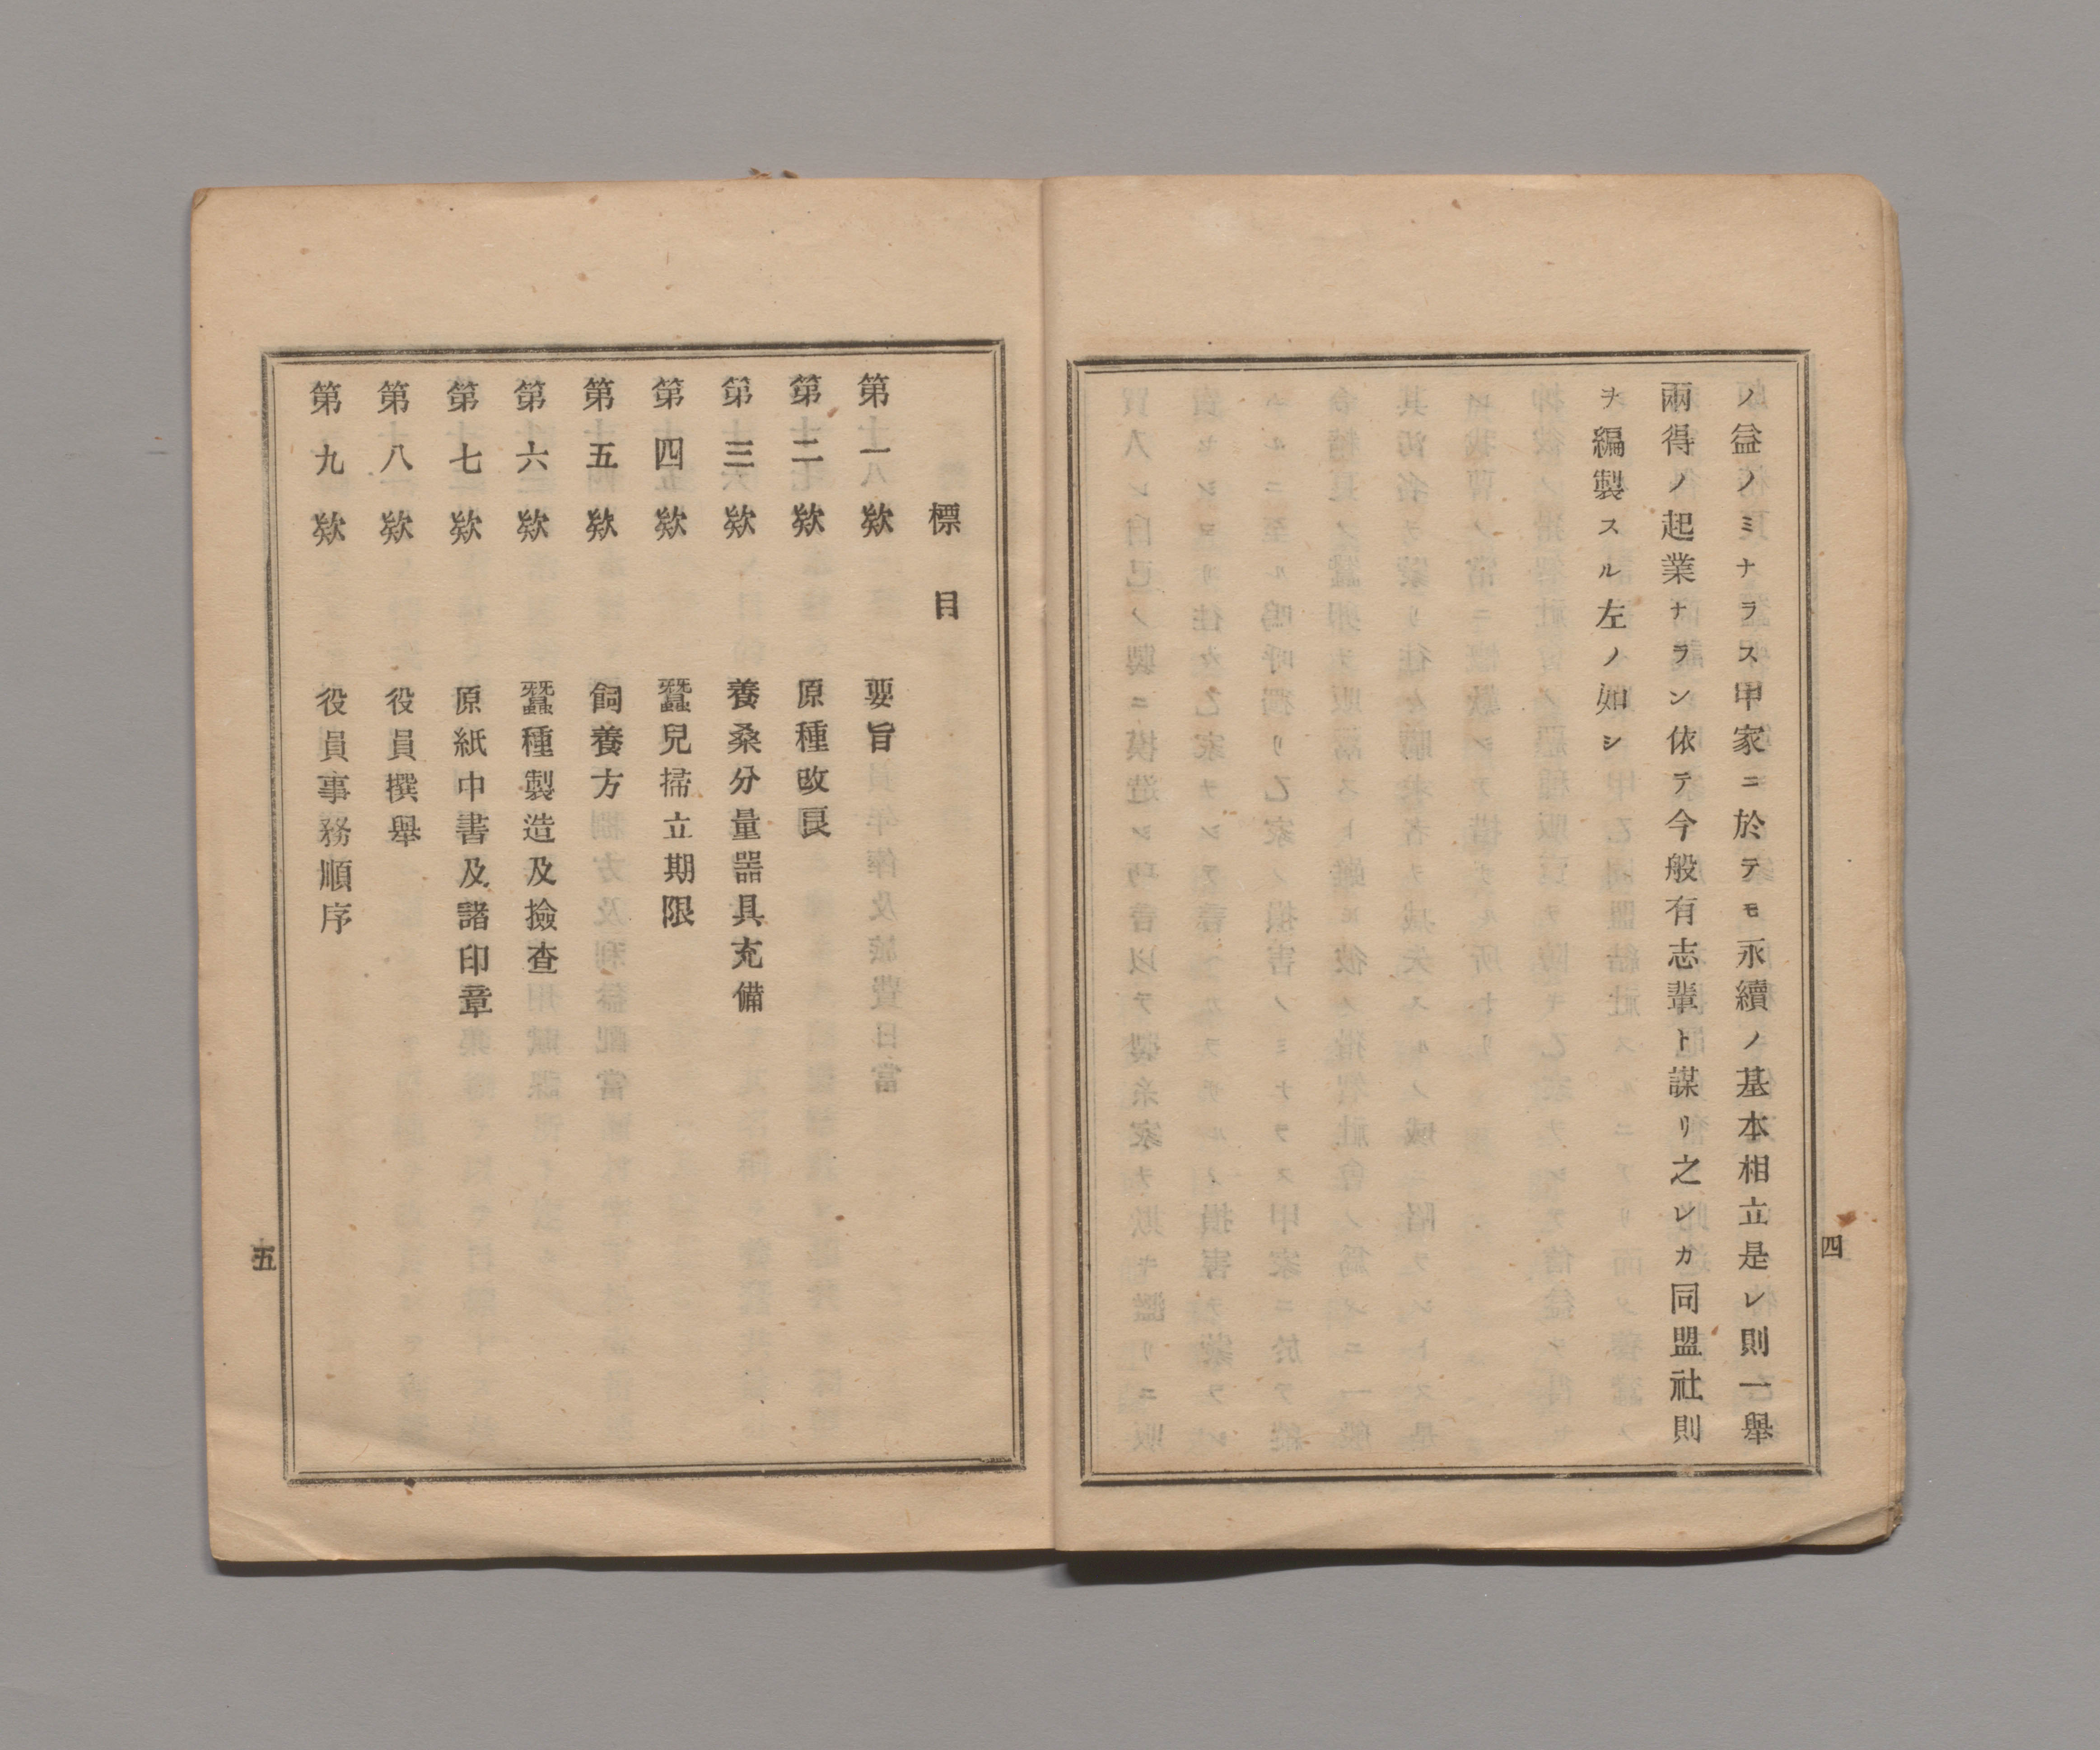 ノ益ノミナラス甲家ニ於テモ永續ノ基本相立是レ則一擧
兩得ノ起業ナラン依テ今般有志輩ト謀リ之レカ同盟社則
ヲ編製スル左ノ如シ
四
標目
第一欵 要旨
第二欵 原種改良
第三欵 養桑分量器具充備
第四欵 蠶兒掃立期限
第五欵 飼養方
第六欵 蠶種製造及撿査
第七欵 原紙中書及諸印章
第八欵 役員撰擧
第九欵 役員事務順序
五